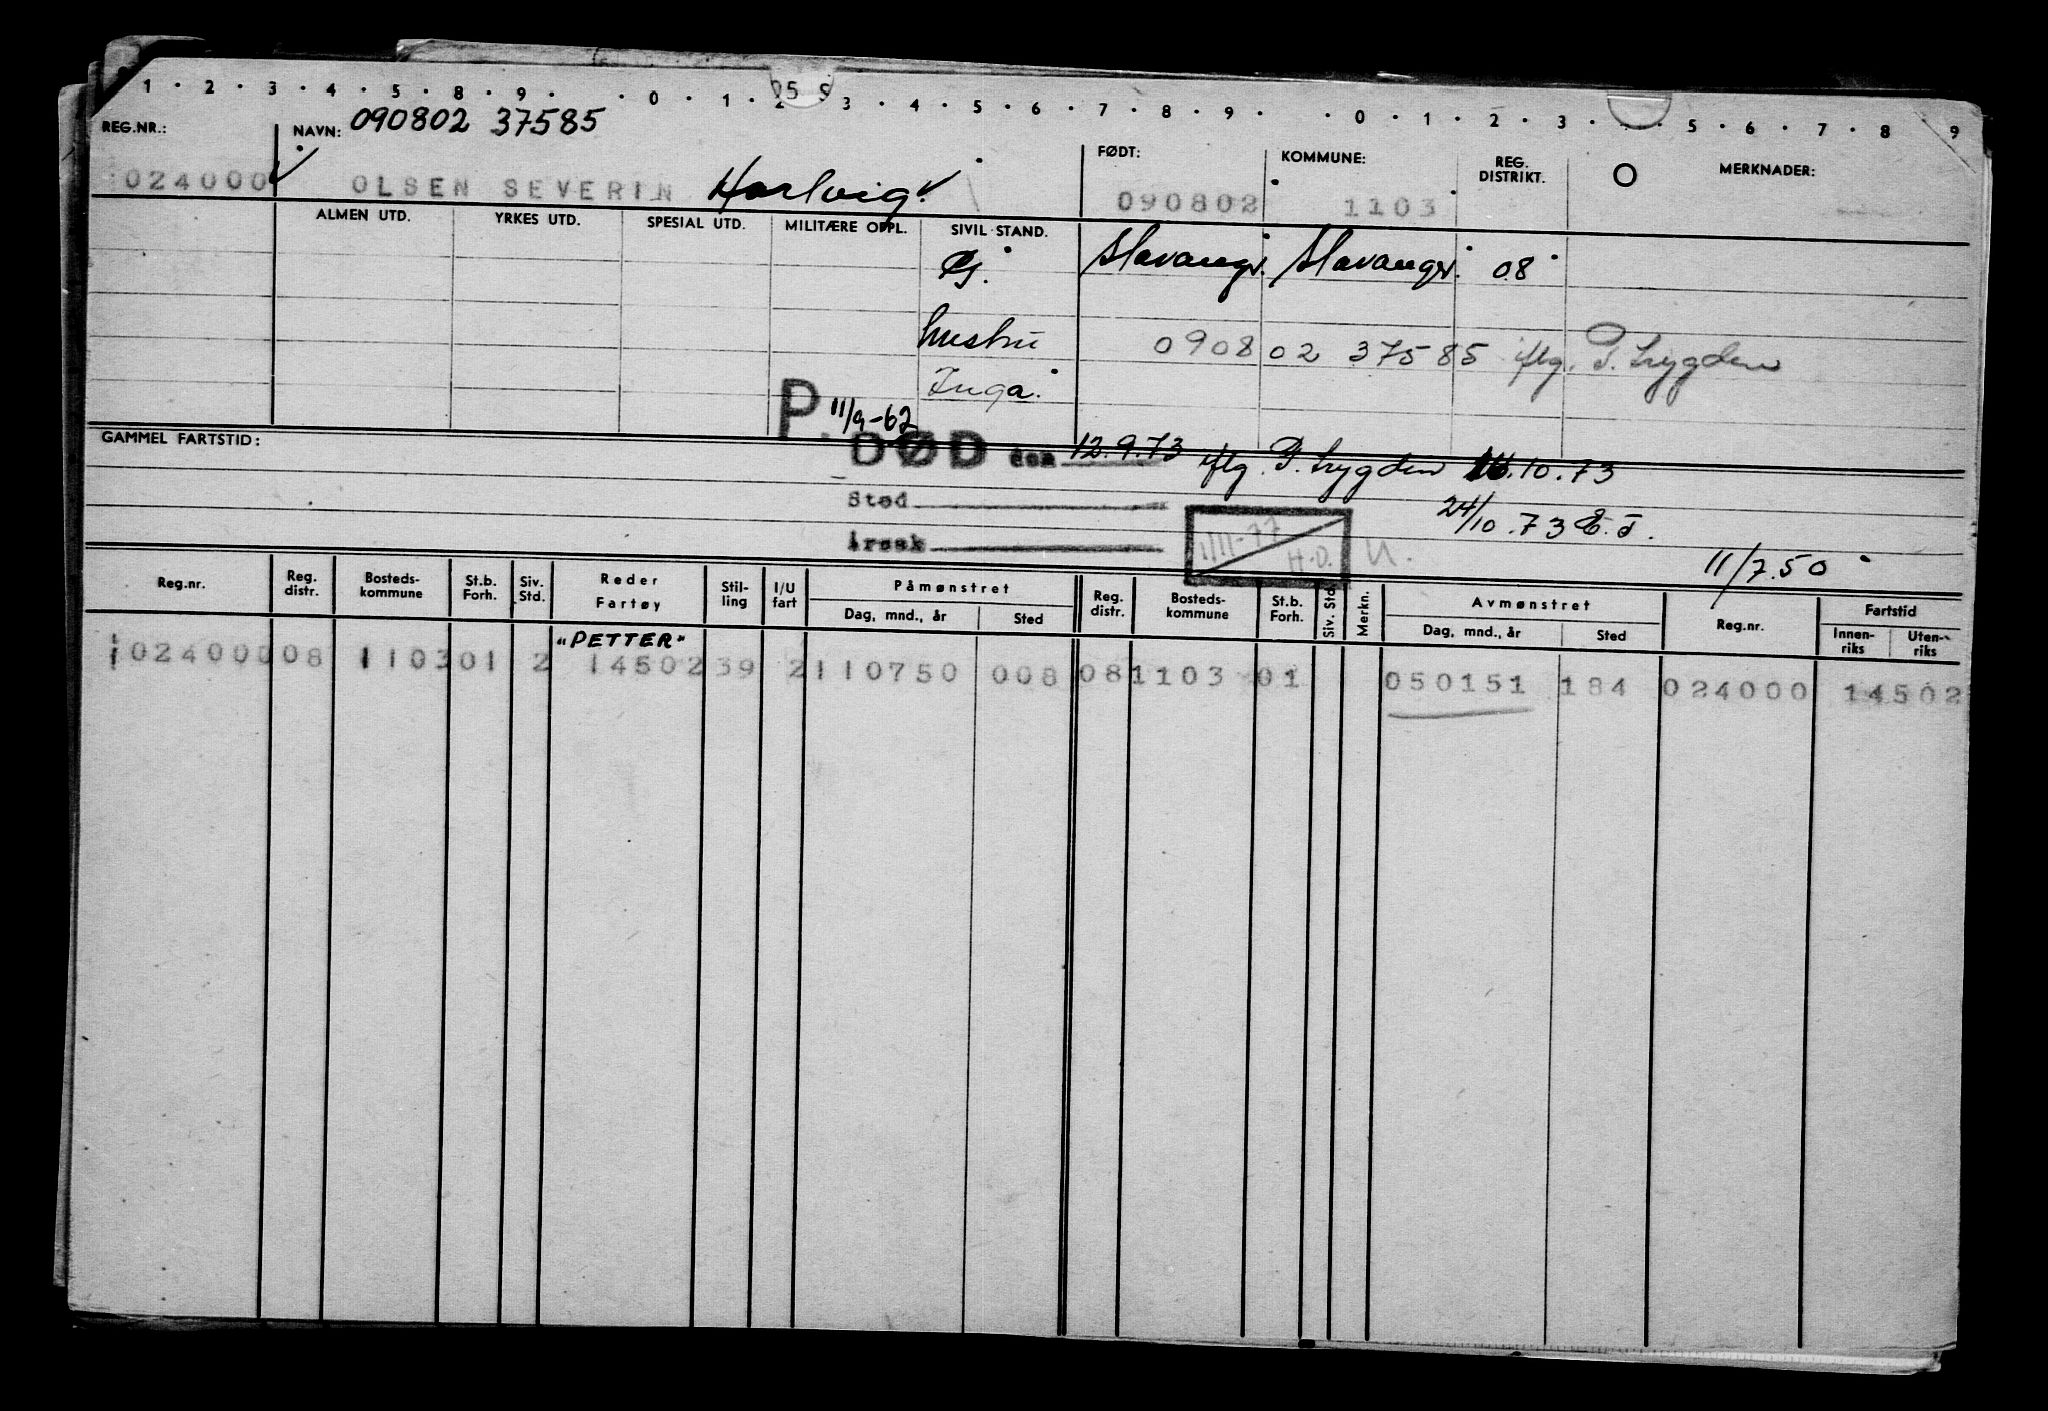 1 · 2 · 3 · 4 · 5 · 8 · 9 · · 0 · 1 · 2 25 S 3 · 4 · 5 · 6 · 7 · 8 · 9 · · 0 · 1 · 2 · 3 · 5 · 6 · 7 · 8 · 9
REG.NR.: NAVN: 090802 37585 FØDT: KOMMUNE: REG. DISTRIKT. MERKNADER:
024000 OLSEN SEVERIN Hartvig. 090802 1103
ALMEN UTD. YRKES UTD. SPESIAL UTD. MILITÆRE OPPL. SIVIL STAND.
g. Stavanger. Stavanger. 08
hustru 090802 37585 iflg. P. Trygden
Inga.
P. 11/9-62
GAMMEL FARTSTID: DØD den 12.9.73 iflg. P. Trygden 16.10.73
Sted 24/10.73 E.J.
Årsak 1/11-77 H.O. U.
11/7.50
Reg.nr. Reg. distr. Bosteds- kommune St.b. Forh. Siv. Std. Reder Fartøy Stil- ling I/U fart Påmønstret Dag, mnd., år Sted Reg. distr. Bosteds- kommune St.b. Forh. Siv. Std. Merkn. Avmønstret Dag, mnd., år Sted Reg.nr. Fartstid Innen- riks Uten- riks
"PETTER"
024000 08 1103 01 2 14502 39 2 110750 008 08 1103 01 050151 184 024000 14502